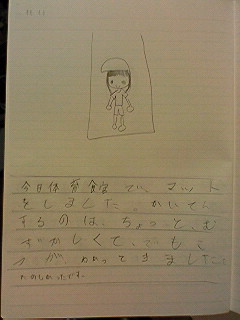 今日体育館で、マット
をしました。かいてん
するのは、ちょっと、む
ずかしくて、でも
わかってきました。
たのしかったです。